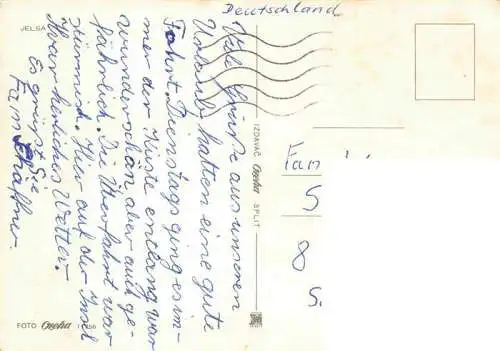 Deutschland
JELSA
Viele Grüße aus unseren
Urlaub hatten eine gute
Fahrt. Dienstags ging es im-
mer der Küste entlang war
wunderschön aber auch ge-
fährlich. Die Überfahrt war
stürmisch. Hier auf der Insel
Hvar herliches Wetter.
Es grüßt Sie
Fam
IZDAVAČ SPLIT
Fam
S
8
S.
FOTO